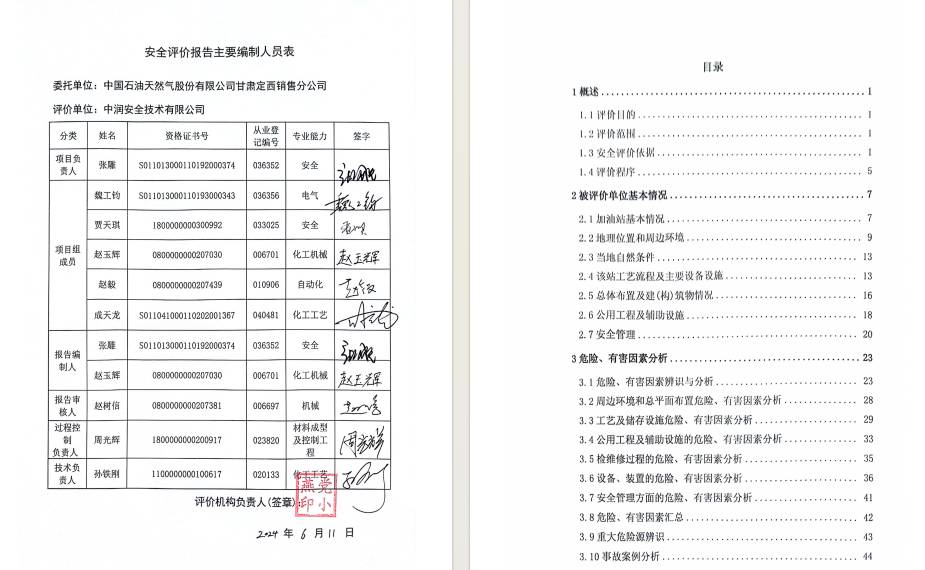 安全评价报告主要编制人员表
委托单位：中国石油天然气股份有限公司甘肃定西销售分公司
评价单位：中润安全技术有限公司
分类 姓名 资格证书号 从业登记编号 专业能力 签字
项目负责人 张雕 S011013000110192000374 036352 安全
项目组成员 魏工钧 S011013000110193000343 036356 电气
贾天琪 1800000000300992 033025 安全
赵玉辉 0800000000207030 006701 化工机械 赵玉辉
赵毅 0800000000207439 010906 自动化 赵毅
成天龙 S011041000110202001367 040481 化工工艺
报告编制人 张雕 S011013000110192000374 036352 安全
赵玉辉 0800000000207030 006701 化工机械 赵玉辉
报告审核人 赵树信 0800000000207381 006697 机械
过程控制负责人 周光辉 1800000000200917 023820 材料成型及控制工程
技术负责人 孙铁刚 1100000000100617 020133 化工工艺
评价机构负责人(签章)：
燕党印小
2024 年 6 月 11 日
目录
1 概述 1
1.1 评价目的 1
1.2 评价范围 1
1.3 安全评价依据 1
1.4 评价程序 5
2 被评价单位基本情况 7
2.1 加油站基本情况 7
2.2 地理位置和周边环境 9
2.3 当地自然条件 13
2.4 该站工艺流程及主要设备设施 13
2.5 总体布置及建(构)筑物情况 16
2.6 公用工程及辅助设施 18
2.7 安全管理 20
3 危险、有害因素分析 23
3.1 危险、有害因素辨识与分析 23
3.2 周边环境和总平面布置危险、有害因素分析 28
3.3 工艺及储存设施危险、有害因素分析 29
3.4 公用工程及辅助设施的危险、有害因素分析 33
3.5 检维修过程的危险、有害因素分析 35
3.6 设备、装置的危险、有害因素分析 36
3.7 安全管理方面的危险、有害因素分析 41
3.8 危险、有害因素汇总 42
3.9 重大危险源辨识 43
3.10 事故案例分析 44